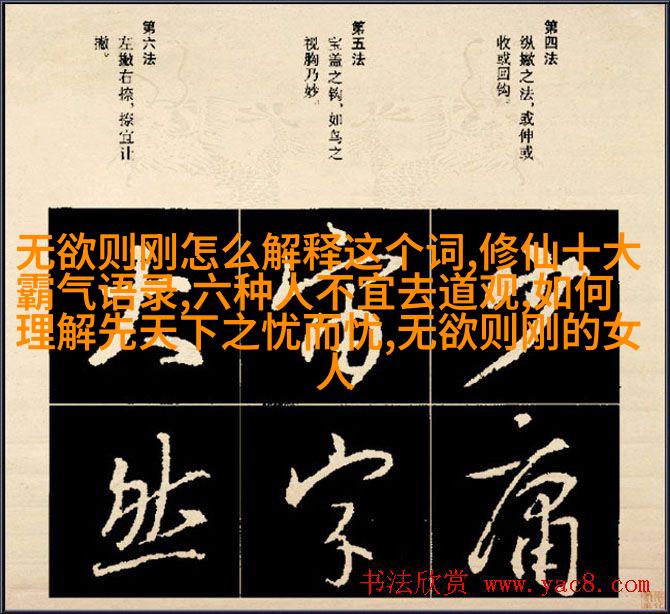 第四法
纵撇之法，或伸或
收或回钩。
第五法
宝盖之钩，如鸟之
视胸乃妙。
第六法
左撇右捺，捺宜让
撇。
无欲则刚怎么解释这个词,修仙十大
霸气语录,六种人不宜去道观,如何
理解先天下之忧而忧,无欲则刚的女
人
少
帝
大
庸
字
然
书法欣赏 www.yac8.com